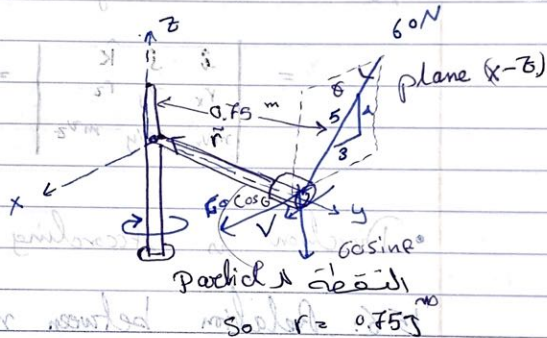 z
60N
plane (x-z)
θ
5
4
3
0.75 m
r̄
x
y
60 cosθ
V
60sinθ
Particl
النقطة
so r = 0.75J m